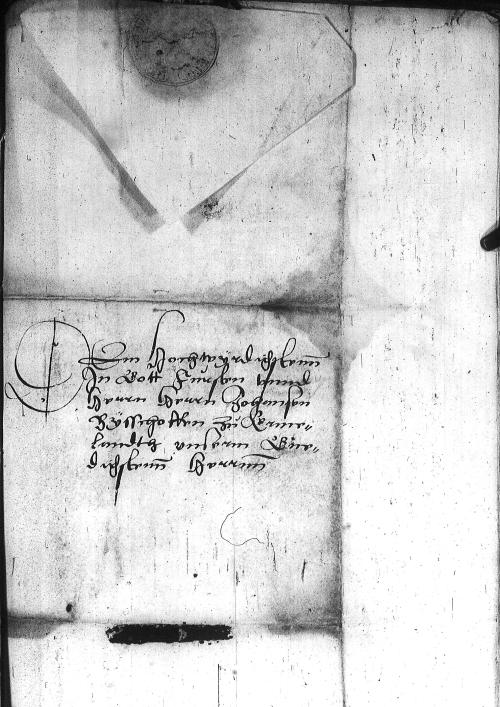 Dem Hochwyrdigstenn
In Gott Fursten unnd
Herrn Herrn Johansen
Bysschoffen zu Erme-
landth unserm Gne-
digstenn Herrnn